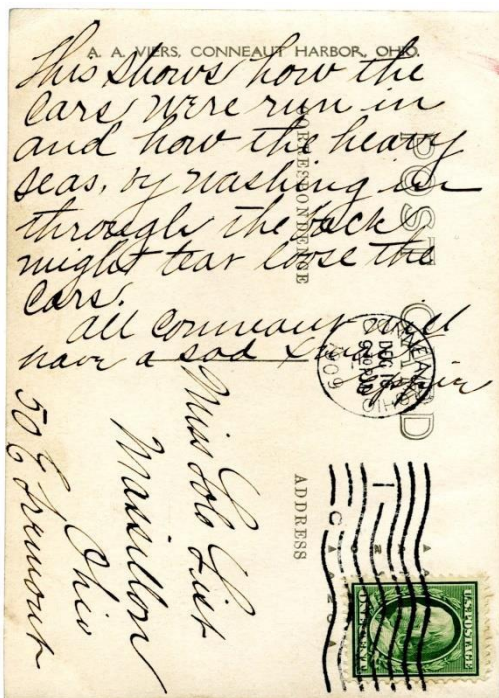 A. A. VIERS, CONNEAUT HARBOR, OHIO.
This shows how the
cars were run in
and how the heavy
seas, by washing in
through the back
might tear loose the
cars.
All Conneaut will
have a sad Xmas
CORRESPONDENCE
POST CARD
CONNEAUT
DEC 18
1909
OHIO
Miss Lois List
Massillon
Ohio
50 E Tremont
ADDRESS
U.S. POSTAGE
ONE CENT